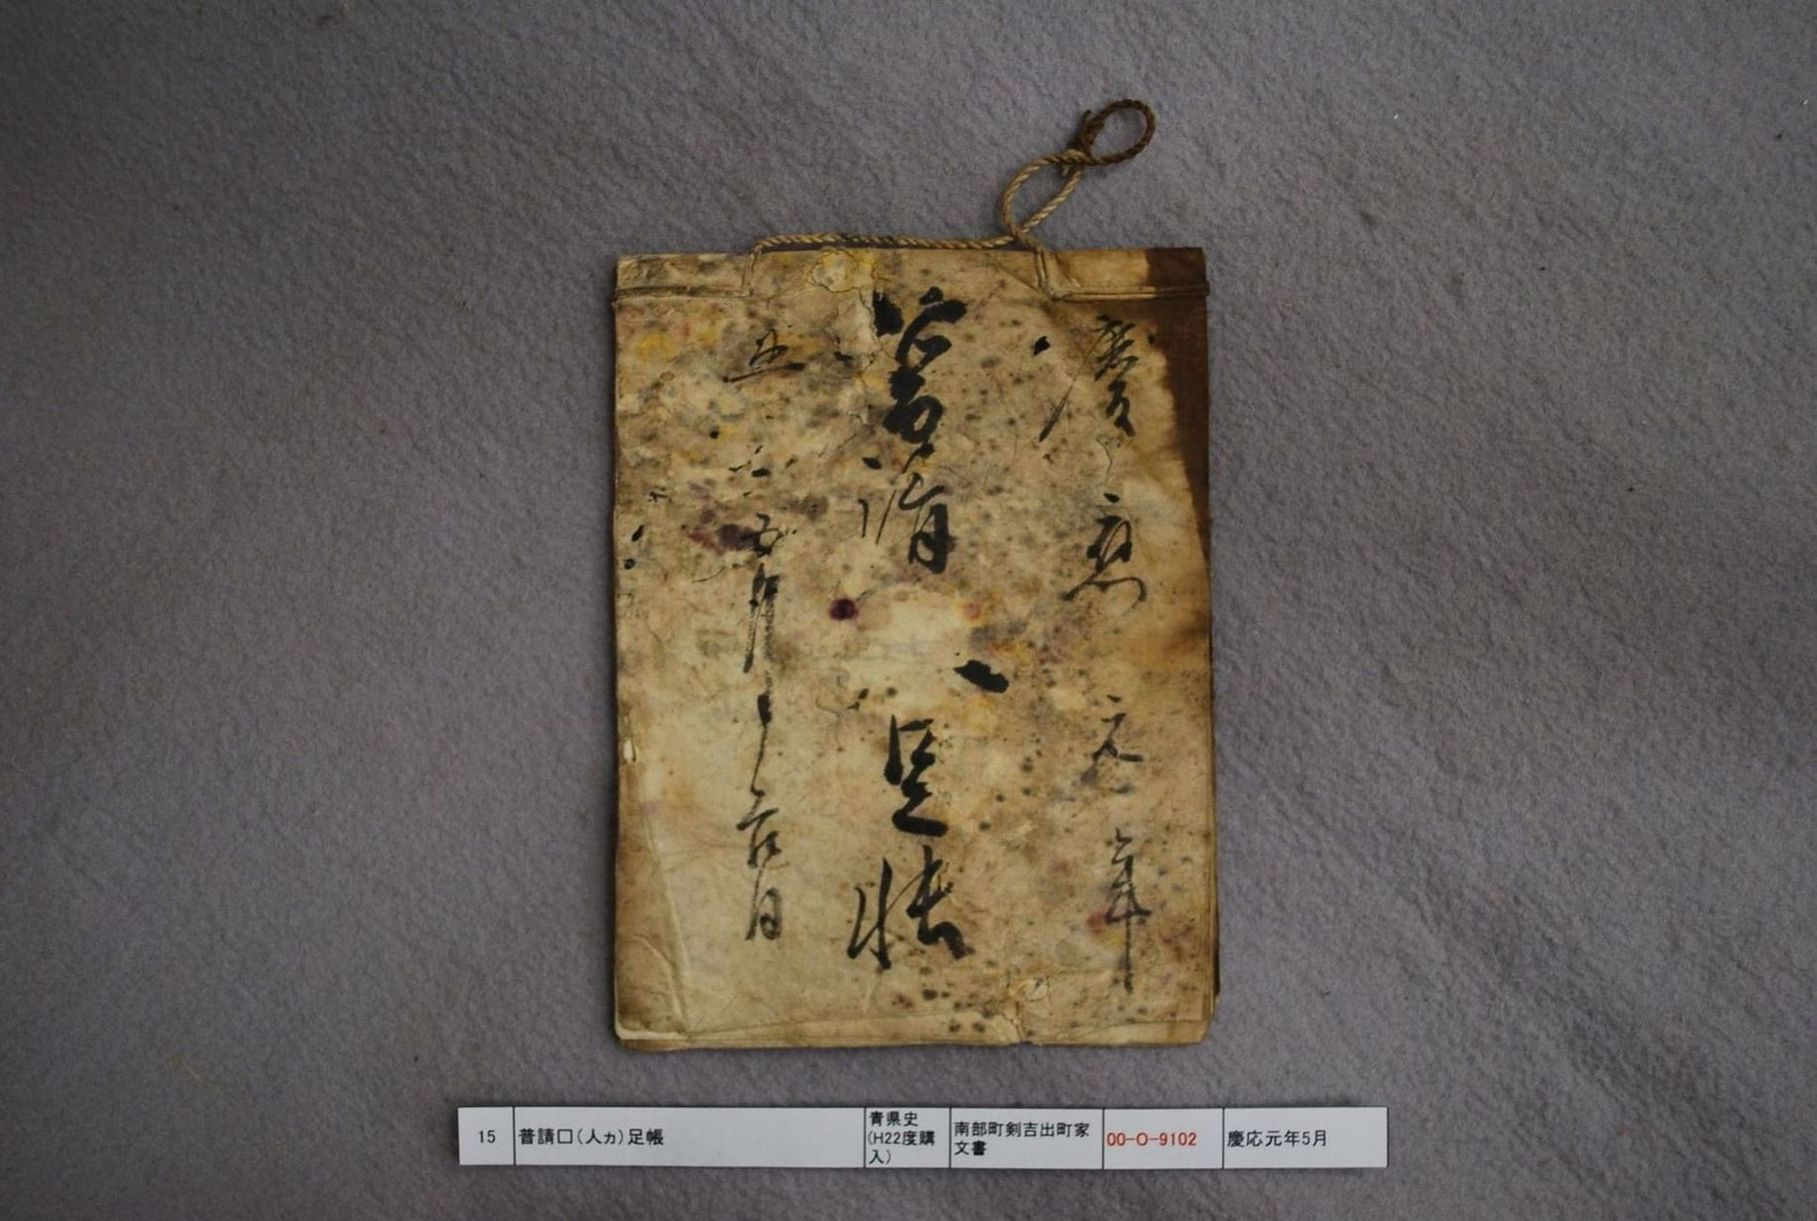 慶應元年
普請 足帳
五月
15
普請□(人ヵ)足帳
青県史
(H22度購
入)
南部町剣吉出町家
文書
00-O-9102
慶応元年5月